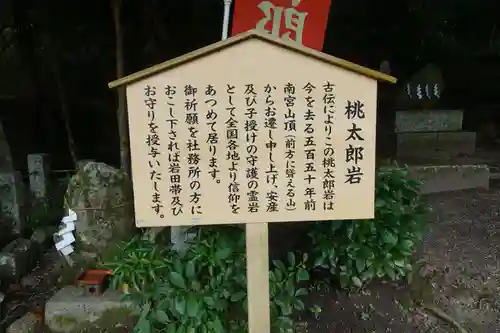 桃太郎岩
古伝によりこの桃太郎岩は
今を去る五百五十年前
南宮山頂(前方に聳える山)
からお遷し申し上げ、安産
及び子授けの守護の霊岩
として全国各地より信仰を
あつめて居ります。
御祈願を社務所の方に
おこし下されば岩田帯及び
お守りを授与いたします。
郎